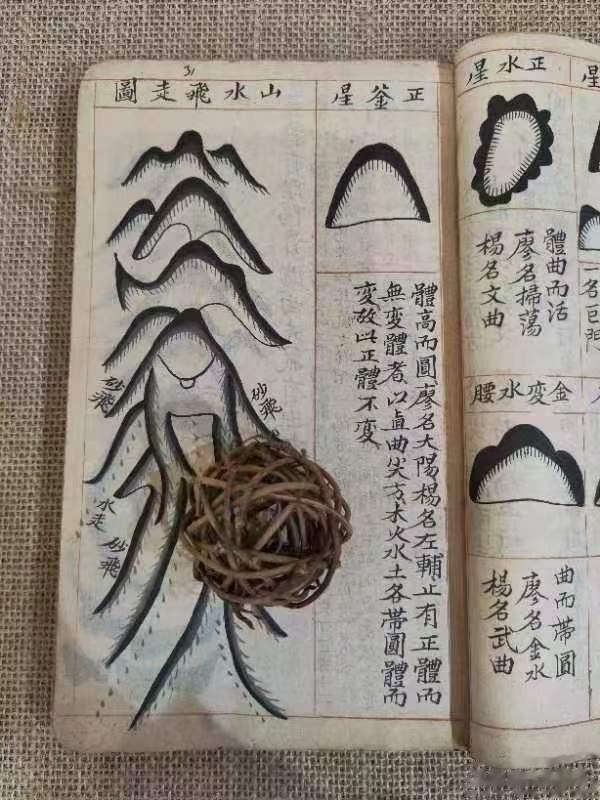 一名巨門
正水星
體曲而活
廖名掃蕩
楊名文曲
金変水腰
曲而帶圓
廖名金水
楊名武曲
正釜星
體高而圓廖名大陽楊名左輔止有正體而
無変體者以直曲尖方木火水土各帶圓體而
変故以正體不変
31
山水飛走圖
砂飛
砂飛
水走
砂飛